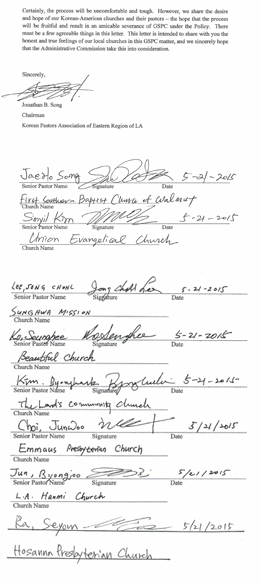 Certainly, the process will be unconfortable and tough. However, we share the desire
and hope of our Korean-American churches and their pastors – the hope that the process
will be fruitful and result in an amicable severance of GSPC under the Policy. There
must be a few agreeable things in this letter. This letter is intended to share with you the
honest and true feelings of our local churches in this GSPC matter, and we sincerely hope
that the Administrative Commission take this into consideration.
Sincerely,
Jonathan B. Song
Chairman
Korean Pastors Association of Eastern Region of LA
JaeHo Song 5-21-2015
Senior Pastor Name Signature Date
First Southern Baptist Church of Walnut
Church Name
Kim 5-21-2015
Senior Pastor Name Signature Date
Union Evangelical Church
LEE, SONG CHOHL 5-21-2015
Senior Pastor Name Signature Date
SUNGHWA MISSION
Church Name
Ko, Seunghee 5-21-2015
Senior Pastor Name Signature Date
Beautiful Church
Church Name
Kim, 5-21-2015
Senior Pastor Name Signature Date
The Lord's Community Church
Church Name
Choi, JunWoo 5/21/2015
Senior Pastor Name Signature Date
Emmaus Presbyterian Church
Church Name
Jun, Byongjoo 5/21/2015
Senior Pastor Name Signature Date
L.A. Hanmi Church
Church Name
Ra, Seyoun 5/21/2015
Hosanna Presbyterian Church